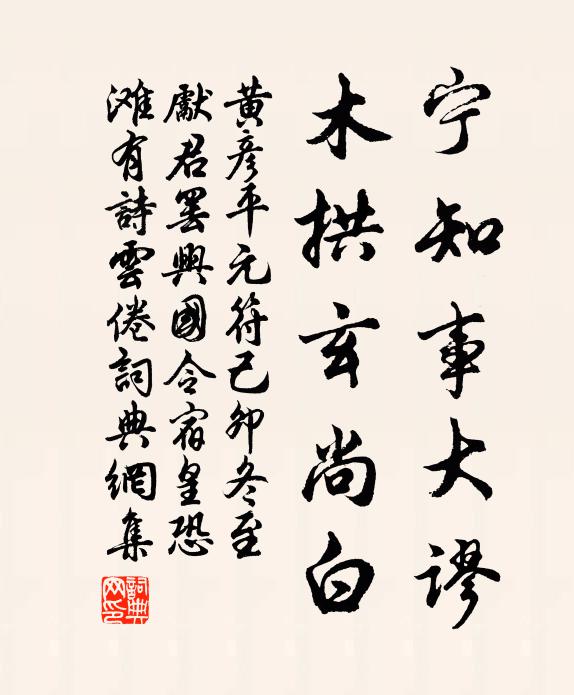 宁知事大谬
木拱玄尚白
黄彦平元符己卯冬至
献君罢兴国令宿皇恐
滩有詩雲倦詞典網集
詞典网印